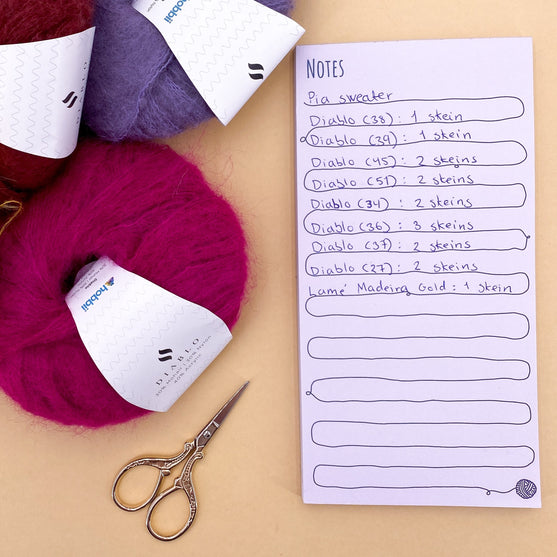 hobbii
NOTES
Pia sweater
Diablo (38) : 1 skein
Diablo (39) : 1 skein
Diablo (45) : 2 skeins
Diablo (51) : 2 skeins
Diablo (34) : 2 skeins
Diablo (36) : 3 skeins
Diablo (37) : 2 skeins
Diablo (27) : 2 skeins
Lamé Madeira Gold : 1 skein
hobbii
DIABLO
30% Mohair | 30% Nylon
40% Acrylic